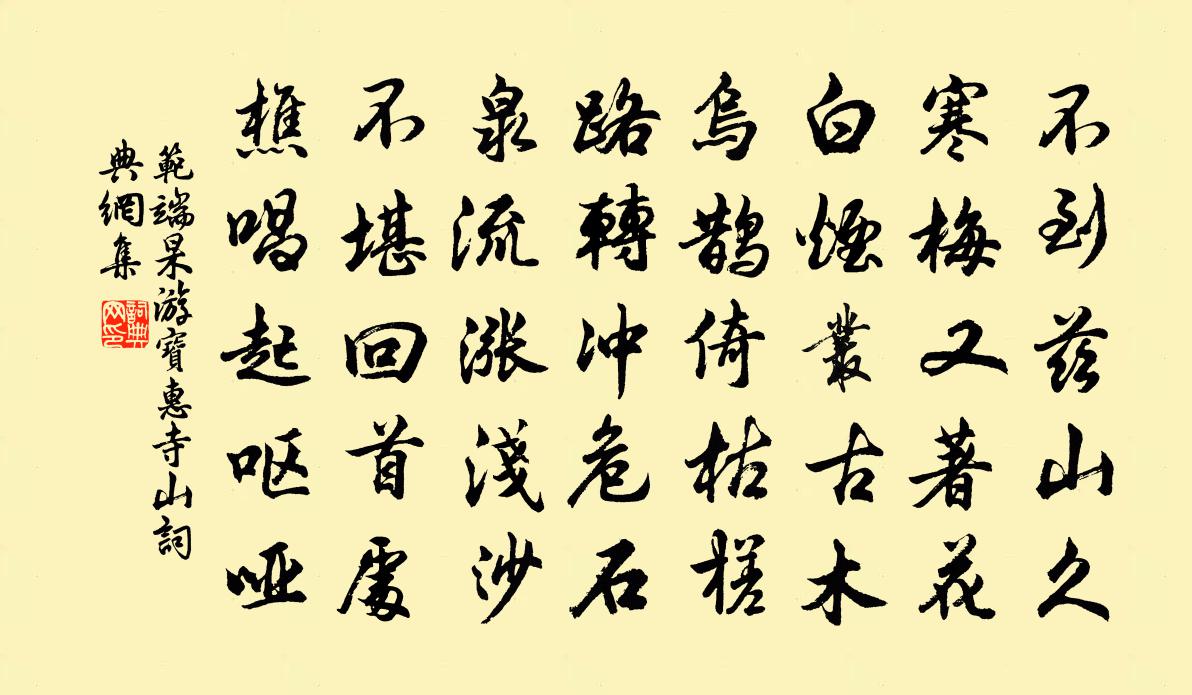 不到茲山久
寒梅又著花
白煙叢古木
烏鵲倚枯槎
路轉冲危石
泉流漲淺沙
不堪回首處
樵唱起呕哑
範端杲游寶惠寺山詞
典網集
詞典
网印